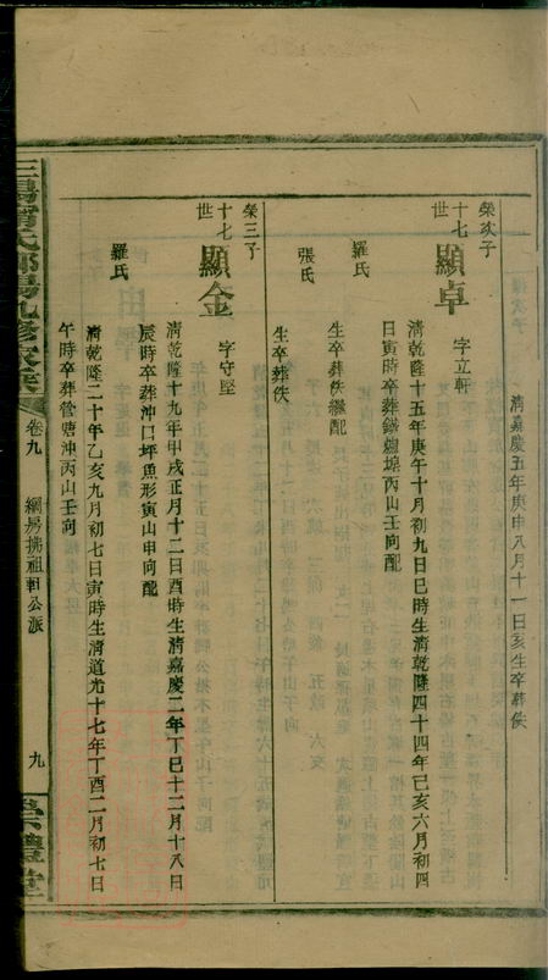 清嘉慶五年庚申八月十一日亥生卒葬佚
榮次子
十七世
顯卓
字立軒
清乾隆十五年庚午十月初九日巳時生清乾隆四十四年己亥六月初四
日寅時卒葬鐵爐塅丙山壬向配
羅氏
生卒葬佚繼配
張氏
生卒葬佚
榮三子
十七世
顯金
字守堅
清乾隆十九年甲戌正月十二日酉時生清嘉慶二年丁巳十二月十八日
辰時卒葬沖口坪魚形寅山申向配
羅氏
清乾隆二十年乙亥九月初七日寅時生清道光十七年丁酉二月初七日
午時卒葬管塘沖丙山壬向
卷九
綱房攜祖軒公派
九
崇禮堂